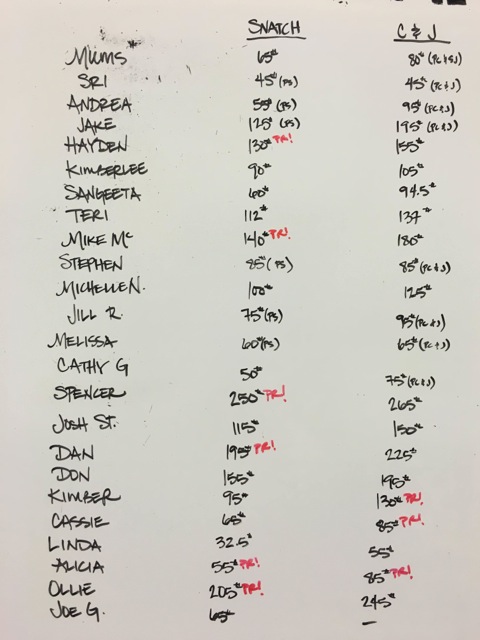 SNATCH C & J
Mums 65# 80# (PC & SJ)
SRI 45# (PS) 45# (PC & J)
ANDREA 55# (PS) 95# (PC & J)
JAKE 125# (PS) 195# (PC & J)
HAYDEN 130# PR! 155#
KIMBERLEE 90# 105#
SANGEETA 60# 94.5#
TERI 112# 137#
MIKE Mc 140# PR! 180#
STEPHEN 85# (PS) 85# (PC & J)
MICHELLE N. 100# 125#
JILL R. 75# (PS) 95# (PC & J)
MELISSA 60# (PS) 65# (PC & J)
CATHY G 50# 75# (PC & J)
SPENCER 250# PR! 265#
JOSH ST. 115# 150#
DAN 195# PR! 225#
DON 155# 195#
KIMBER 95# 130# PR!
CASSIE 65# 85# PR!
LINDA 32.5# 55#
ALICIA 55# PR! 85# PR!
OLLIE 205# PR! 245#
JOE G. 65# –